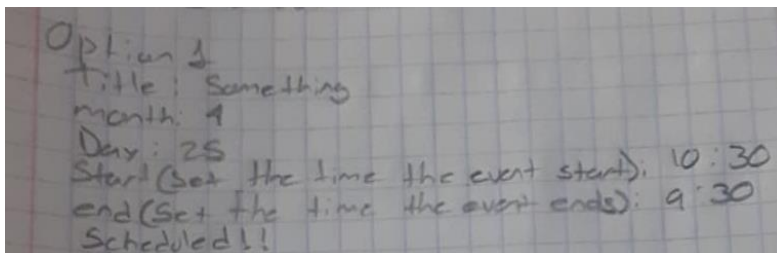 Option 1
Title: Something
month: 4
Day: 25
Start (Set the time the event start): 10:30
end (Set the time the event ends): 9:30
Scheduled!!